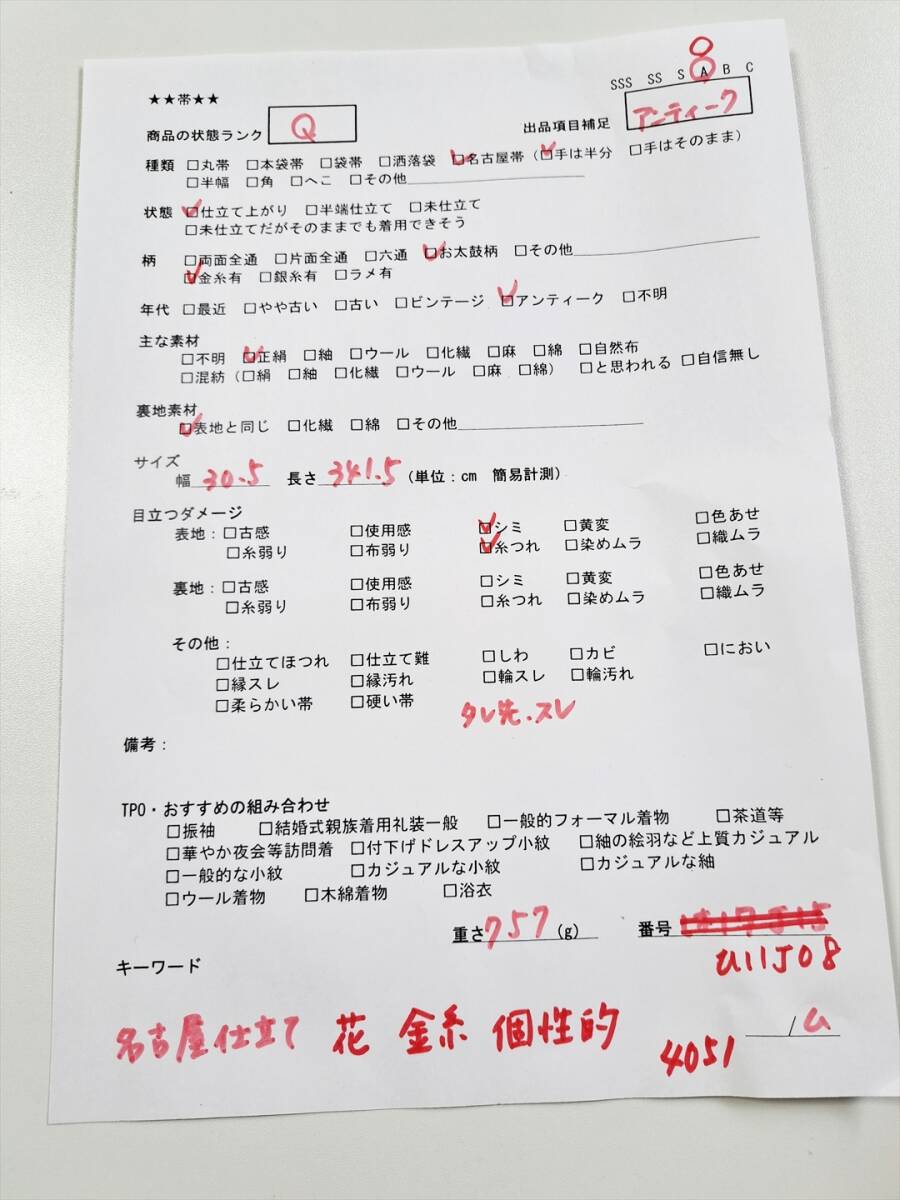 ★★帯★★
SSS SS S A B C
商品の状態ランク Q 出品項目補足 アンティーク
種類 □丸帯 □本袋帯 □袋帯 □洒落袋 ☑名古屋帯(☑手は半分 □手はそのまま)
□半幅 □角 □へこ □その他
状態 ☑仕立て上がり □半端仕立て □未仕立て
□未仕立てだがそのままでも着用できそう
柄 □両面全通 □片面全通 □六通 ☑お太鼓柄 □その他
☑金糸有 □銀糸有 □ラメ有
年代 □最近 □やや古い □古い □ビンテージ ☑アンティーク □不明
主な素材
□不明 ☑正絹 □紬 □ウール □化繊 □麻 □綿 □自然布
□混紡(□絹 □紬 □化繊 □ウール □麻 □綿) □と思われる □自信無し
裏地素材
☑表地と同じ □化繊 □綿 □その他
サイズ
幅 30.5 長さ 341.5 (単位:cm 簡易計測)
目立つダメージ
表地:□古感 □使用感 ☑シミ □黄変 □色あせ
□糸弱り □布弱り ☑糸つれ □染めムラ □織ムラ
裏地:□古感 □使用感 □シミ □黄変 □色あせ
□糸弱り □布弱り □糸つれ □染めムラ □織ムラ
その他:
□仕立てほつれ □仕立て難 □しわ □カビ □におい
□縁スレ □縁汚れ □輪スレ □輪汚れ
□柔らかい帯 □硬い帯
タレ先.スレ
備考:
TPO・おすすめの組み合わせ
□振袖 □結婚式親族着用礼装一般 □一般的フォーマル着物 □茶道等
□華やか夜会等訪問着 □付下げドレスアップ小紋 □紬の絵羽など上質カジュアル
□一般的な小紋 □カジュアルな小紋 □カジュアルな紬
□ウール着物 □木綿着物 □浴衣
重さ 757 (g) 番号
U11J08
キーワード
名古屋仕立て 花 金糸 個性的
4051